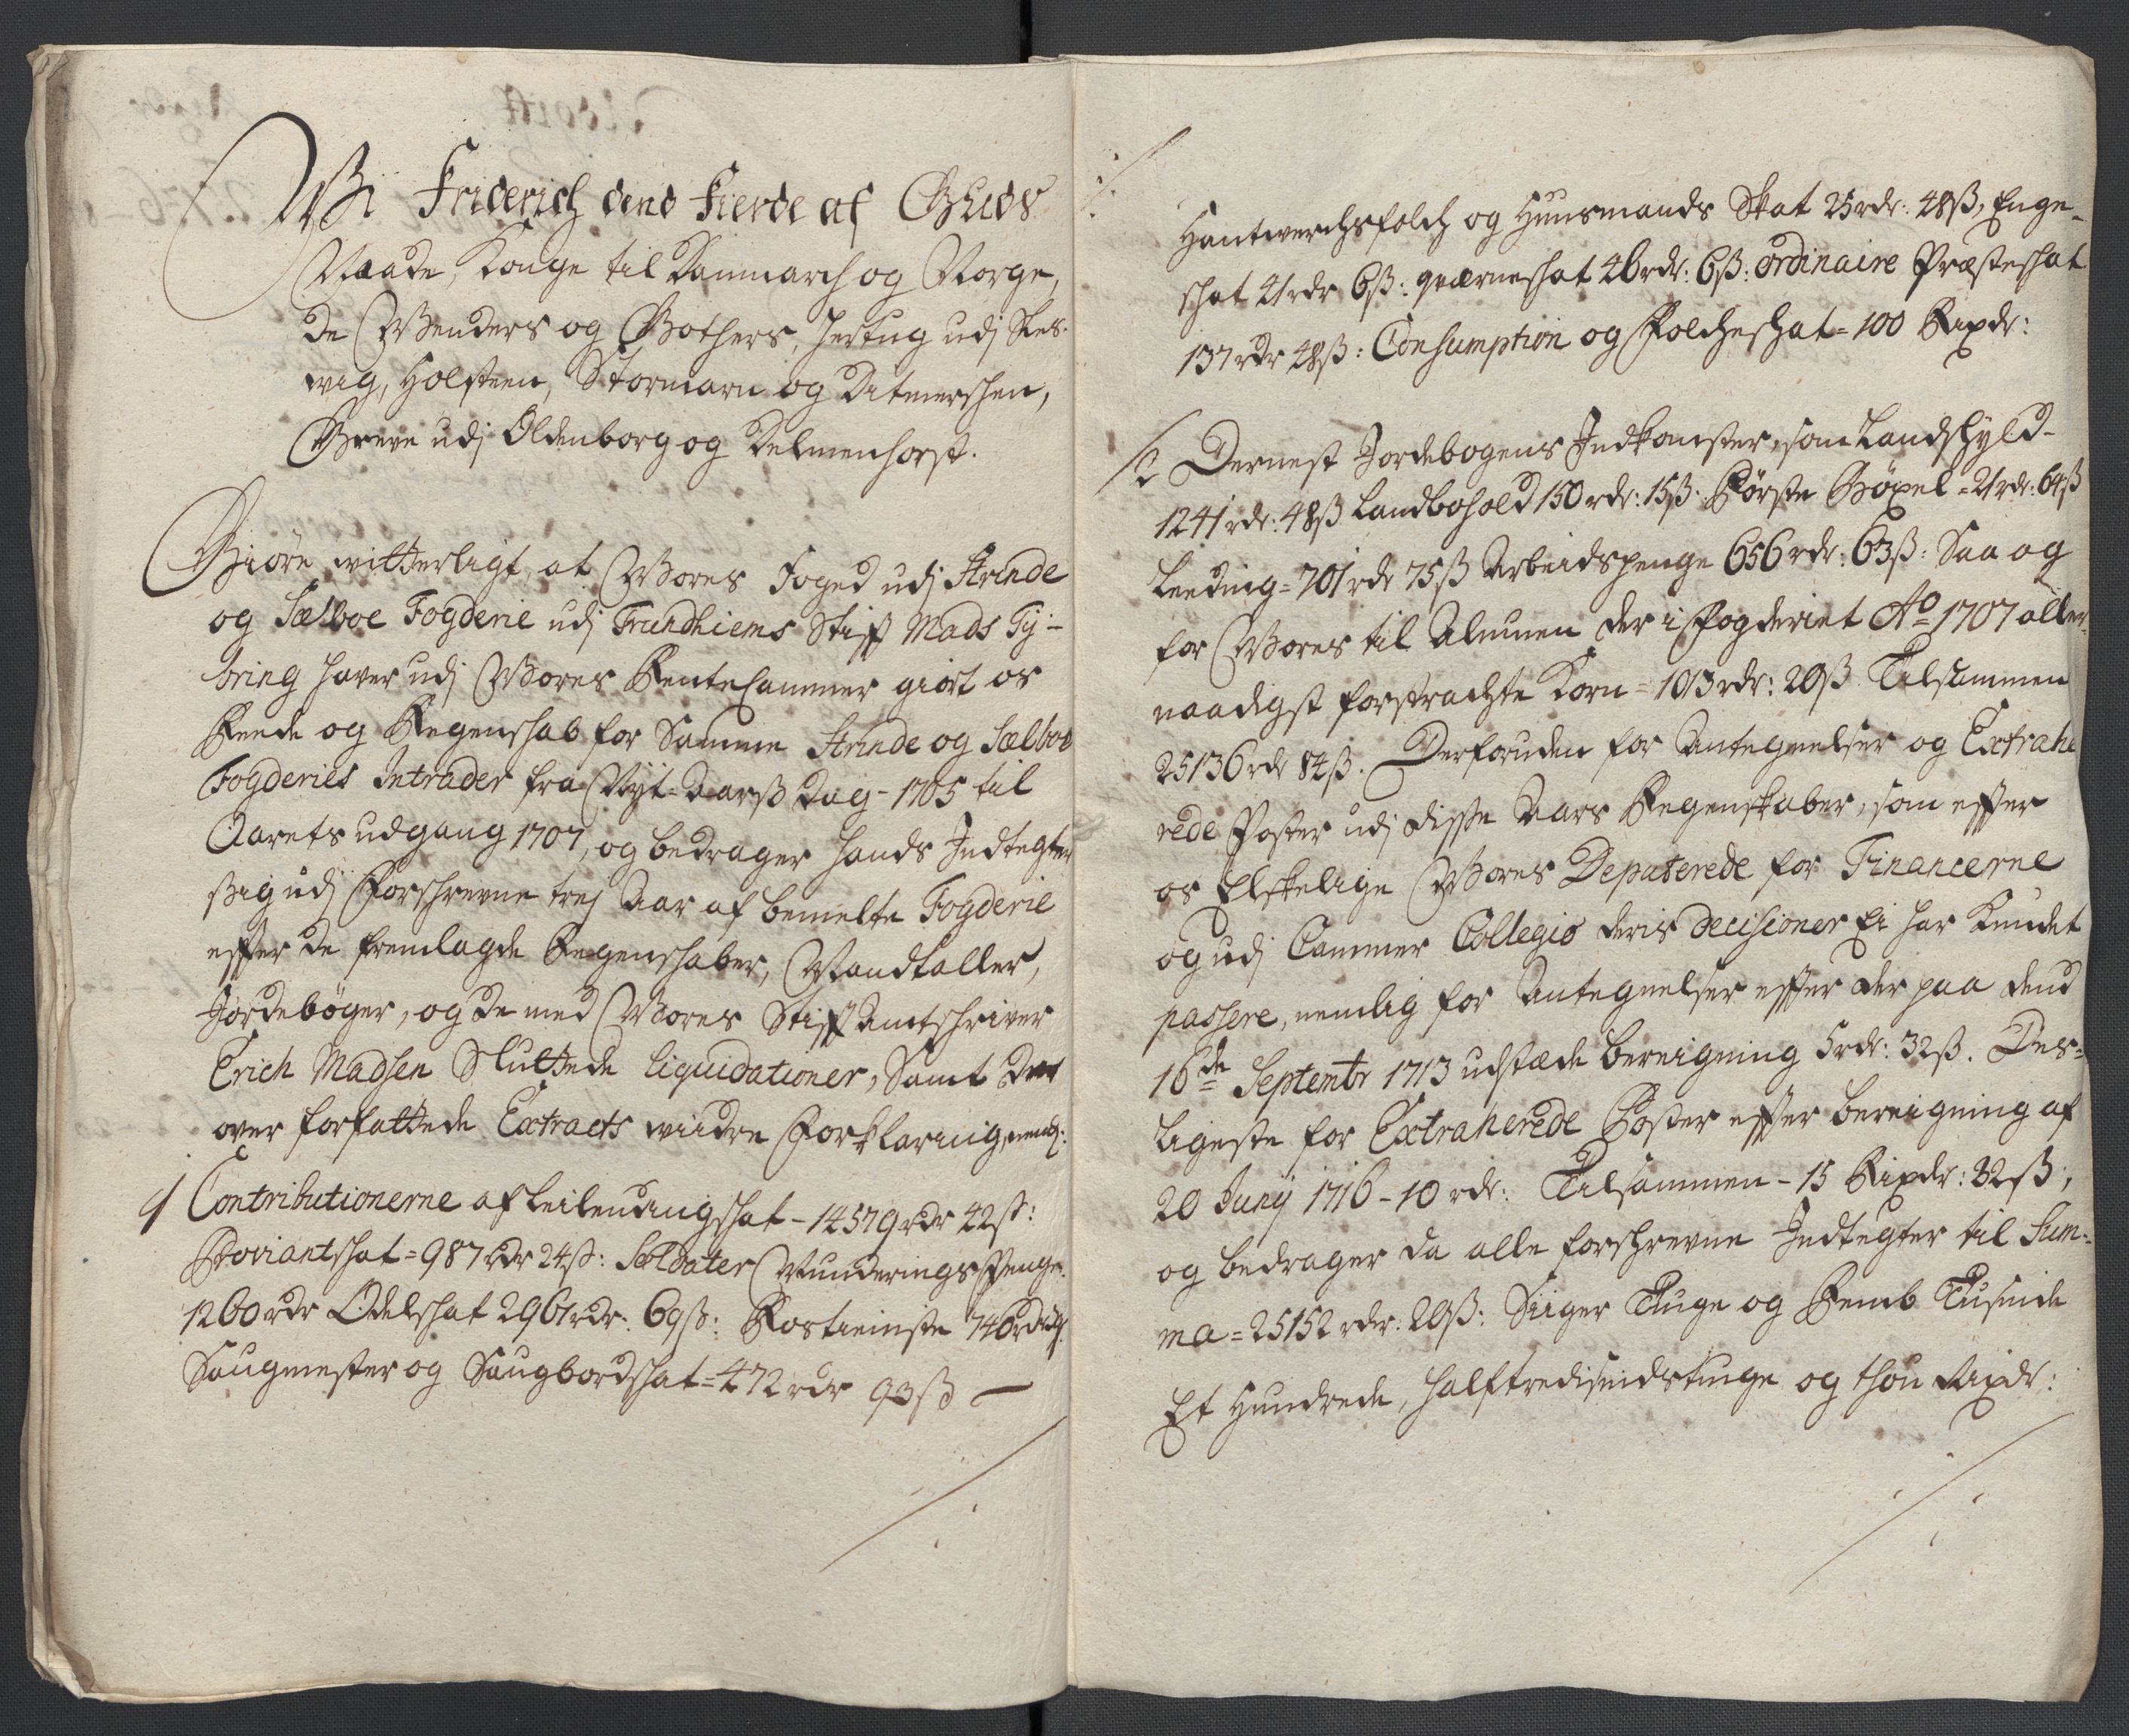 Wi Friderich dend Fierde af Guds
Naade, Konge til Danmarch og Norge,
de Wenders og Gothers, Hertug udj Sles-
wig, Holsteen, Stormarn og Ditmerschen,
Greve udj Oldenborg og Delmenhorst.
Giøre witterligt, at Vores Foged udj Strinde
og Sælboe Fogderie udj Trundhiems Stift Mads Ty-
bring haver udj Vores Rentecammer giört os
Reede og Regenschab for Samme Strinde og Sælboe
Fogderies Intrader fra Nyt-Aarß Dag 1705 til
Aarets udgang 1707, og bedrager hands Indtegter
ßig udj forschrevne trej Aar af bemelte Fogderie
effter de fremlagde Regenschaber, Mandtaller,
Jordebøger, og de med Vores Stifft Ambtschriver
Erich Madsen Sluttede Liquidationer, Samt der
over forfattede Extracts viidre Forklaring, neml:
1 Contributionerne af Leilendingschat - 14579 rdr 42 ß:
Proviantschat = 987 rdr 24 ß: Soldater Munderings Penge
1260 rdr Odelschat 2961 rdr: 69 ß: Rostieniste 746 rdr
Saugmester og Saugbordschat = 472 rdr 93 ß —
Hantwerchsfolch og Huusmands Skat 25 rdr: 48 ß, Enge-
schat 41 rdr 6 ß: qværneschat 46 rdr: 6 ß: ordinaire Præsteschat
137 rdr 48 ß: Consumption og Folcheschat = 100 Rixdr:
/2 Dernest Jordebogens Indkomster, som Landschyld
1241 rdr: 48 ß Landbohold 150 rdr: 15 ß: Förste Böxel = 21 rdr: 64 ß
Leeding = 701 rdr 75 ß Arbeidspenge 656 rdr: 63 ß: Saa og
for Vores til Almuen der i Fogderiet Ao 1707 aller-
naadigst forstrachte Korn = 1013 rdr: 20 ß Tilsammen
25136 rdr 84 ß. Derforuden for Antegnelser og Extrahe
rede Poster udj disse Aars Regenskaber, som effter
os Elskelige Vores Deputerede for Financerne
og udj Cammer Collegio deris decisioner Ei har kundet
passere, nemlig for Antegnelser effter der paa dend
16de Septembr 1713 udstæde bereigning 5 rdr: 32 ß. Des-
ligeste for Extraherede Poster effter bereigning af
20 Junij 1716 - 10 rdr: Tilsammen - 15 Rixdr: 32 ß;
og bedrager da alle forschrevne Indtegter til Sum-
ma = 25152 rdr: 20 ß: Siiger Tiuge og Femb Tusinde
Et Hundrede, halftredisindstiuge og thou Rixdr: